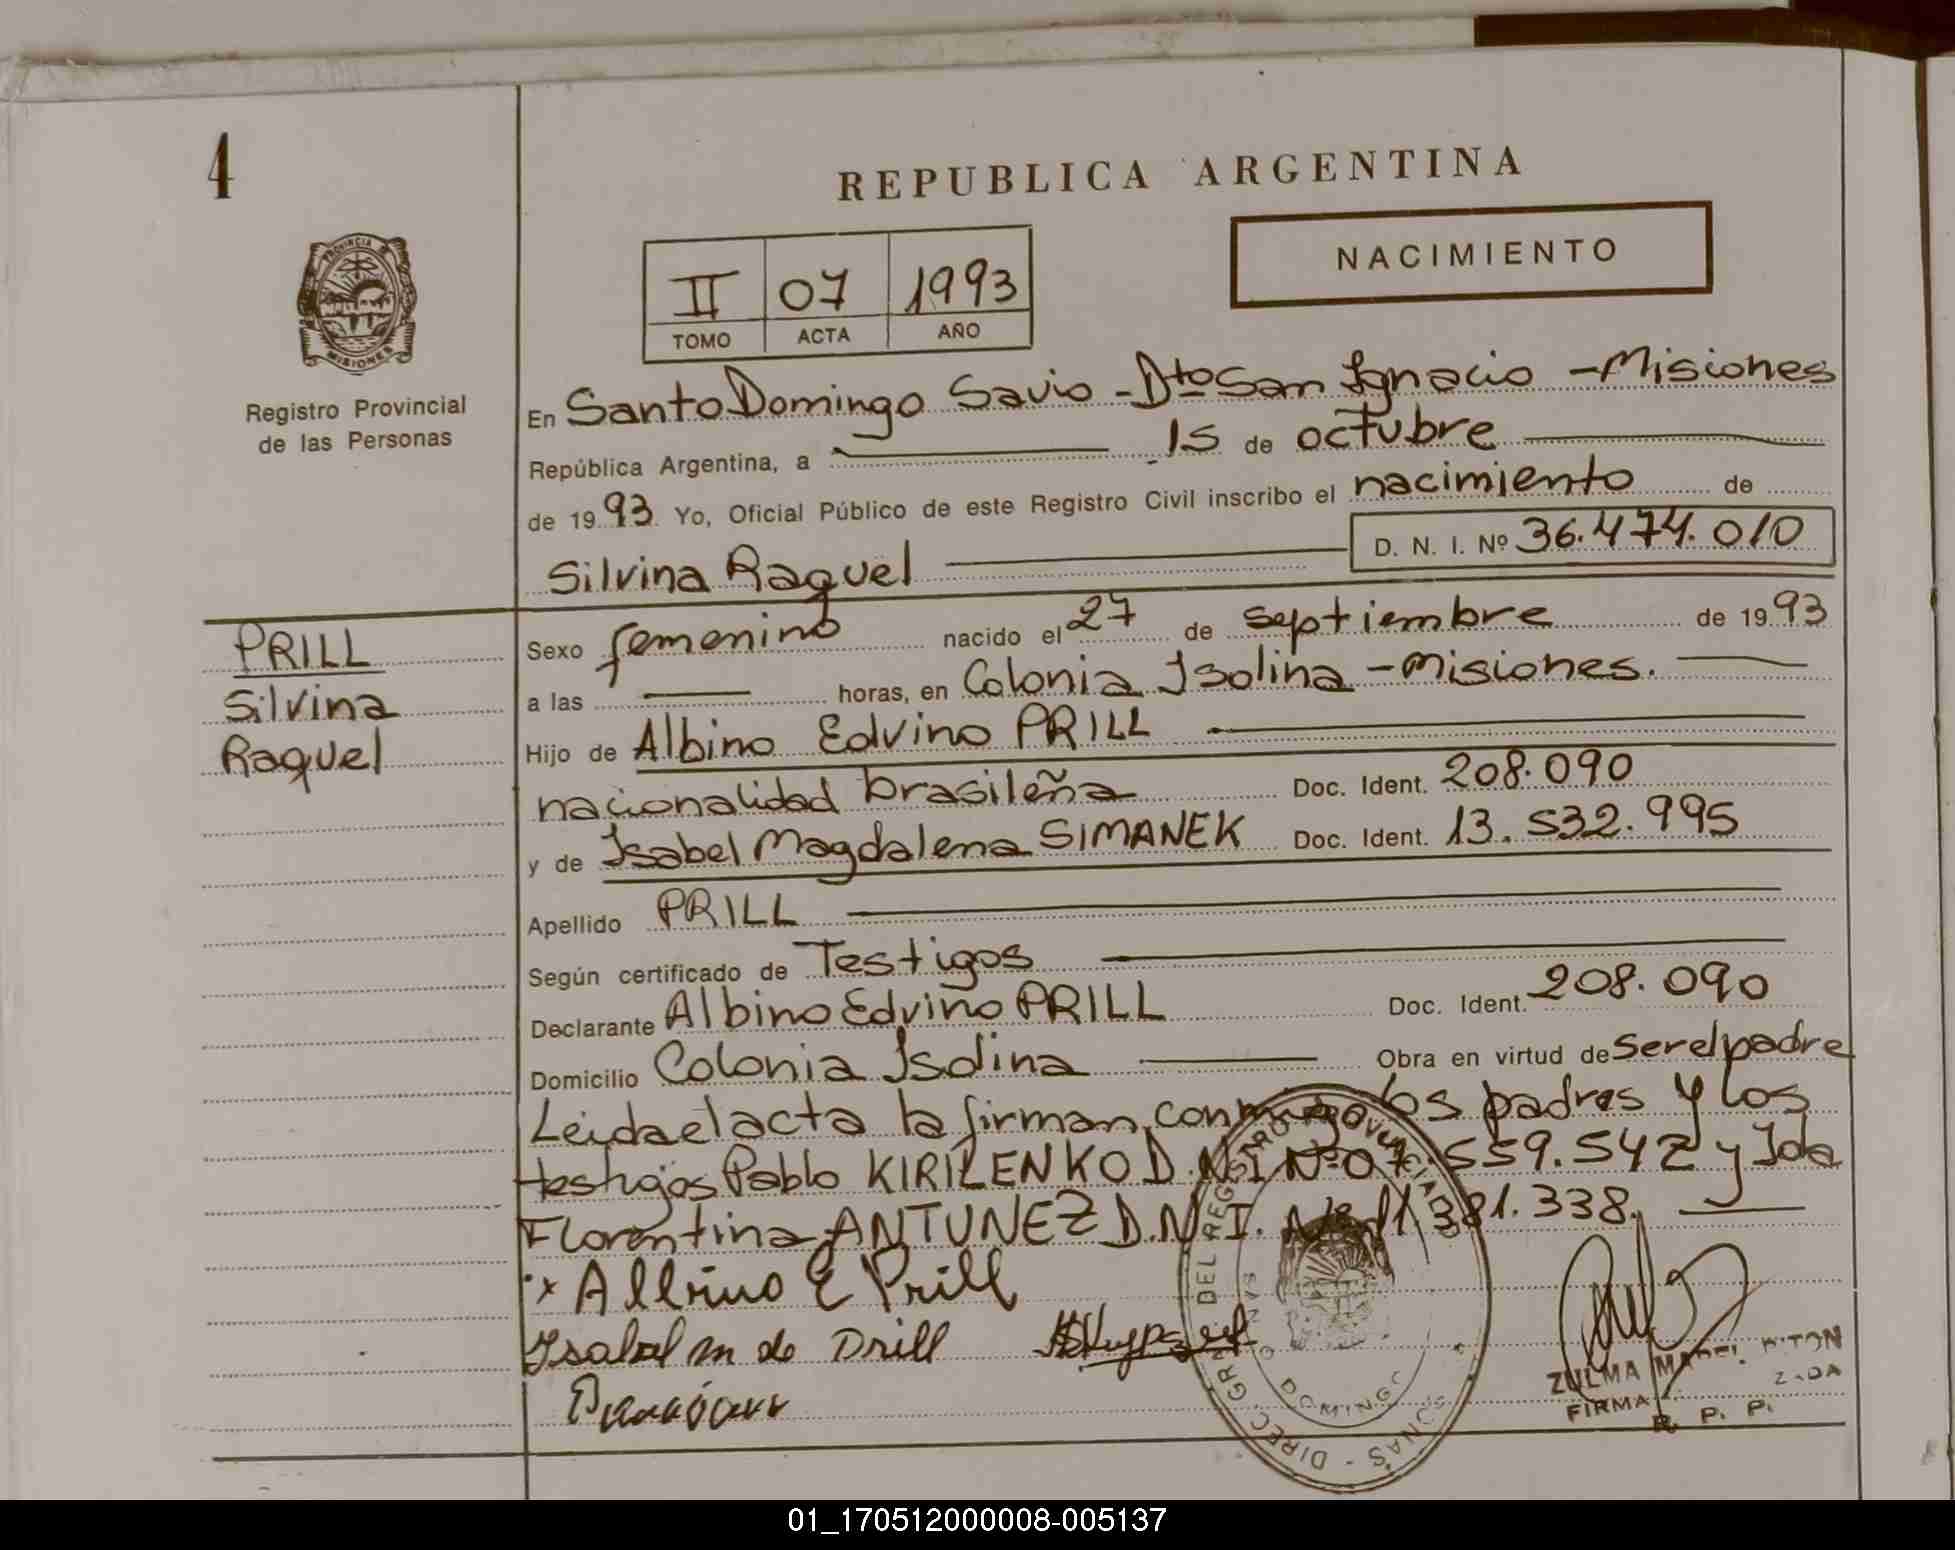 4
REPUBLICA ARGENTINA
NACIMIENTO
II 07 1993
TOMO ACTA AÑO
PROVINCIA DE
MISIONES
Registro Provincial
de las Personas
En Santo Domingo Savio - Dto San Ignacio - Misiones
República Argentina, a 15 de octubre
de 1993 Yo, Oficial Público de este Registro Civil inscribo el nacimiento de
Silvina Raquel D. N. I. Nº 36.474.010
PRILL
Silvina
Raquel
Sexo femenino nacido el 27 de septiembre de 1993
a las horas, en Colonia Isolina - Misiones.
Hijo de Albino Edvino PRILL
nacionalidad brasileña Doc. Ident. 208.090
y de Isabel Magdalena SIMANEK Doc. Ident. 13.532.995
Apellido PRILL
Según certificado de Testigos
Declarante Albino Edvino PRILL Doc. Ident. 208.090
Domicilio Colonia Isolina Obra en virtud de ser el padre
Leida el acta la firman conmigo los padres y los
testigos Pablo KIRILENKO D.N.I Nº 07.559.542 y Ida
Florentina ANTUNEZ D.N.I. Nº 11.381.338.
x Albino E Prill
Isabel m de Prill
ZULMA MABEL
FIRMA
R. P. P.
01_170512000008-005137